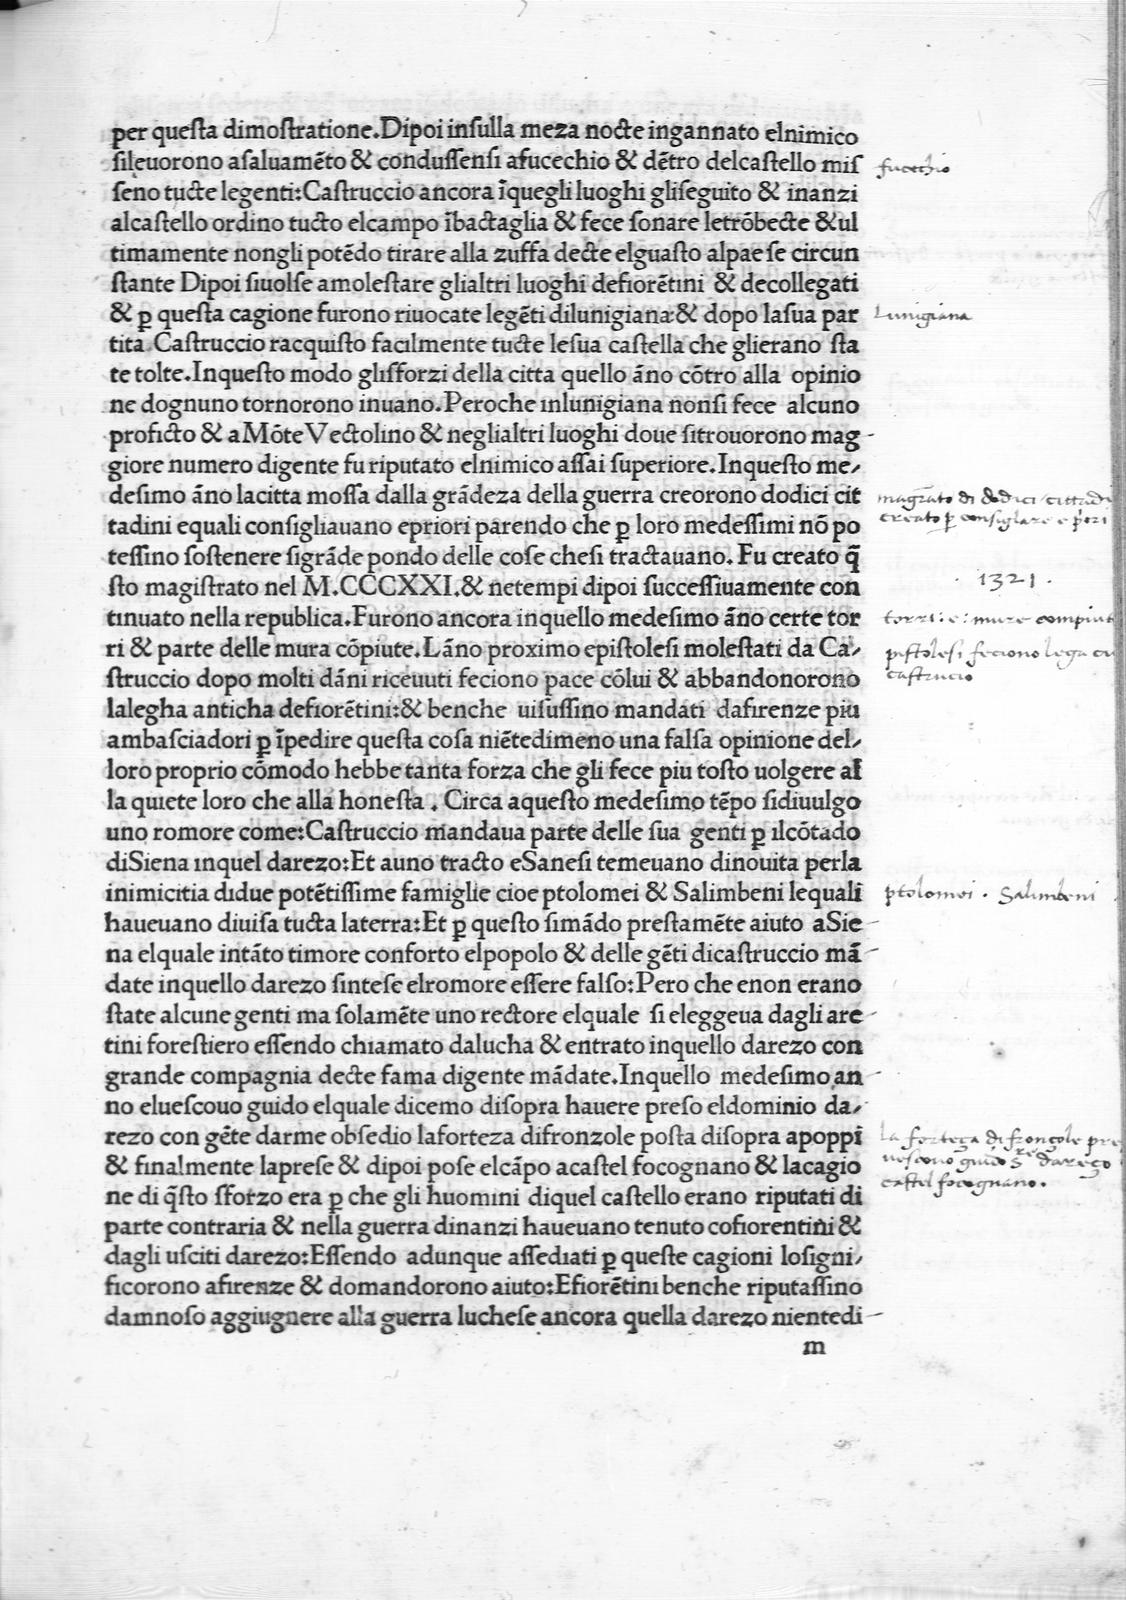 per queſta dimoſtratione.Dipoi inſulla meza nocte ingannato elnimico
ſileuorono aſaluamēto & conduſſenſi afucechio & dētro delcaſtello miſ
ſeno tucte legenti:Caſtruccio ancora īquegli luoghi gliſeguito & inanzi
alcaſtello ordino tucto elcampo ībactaglia & fece ſonare letrōbecte & ul
timamente nongli potēdo tirare alla zuffa decte elguaſto alpaeſe circun
ſtante Dipoi ſiuolſe amoleſtare glialtri luoghi defiorētini & decollegati
& ꝑ queſta cagione furono riuocate legēti dilunigiana:& dopo laſua par
tita Caſtruccio racquiſto facilmente tucte leſua caſtella che glierano ſta
te tolte.Inqueſto modo gliſforzi della citta quello āno cōtro alla opinio
ne dognuno tornorono inuano.Peroche inlunigiana nonſi fece alcuno
proficto & aMōte Vectolino & neglialtri luoghi doue ſitrouorono mag
giore numero digente fu riputato elnimico aſſai ſuperiore.Inqueſto me⸗
deſimo āno lacitta moſſa dalla grādeza della guerra creorono dodici cit
tadini equali conſigliauano epriori parendo che ꝑ loro medeſſimi nō po
teſſino ſoſtenere ſigrāde pondo delle coſe cheſi tractauano. Fu creato q̄
ſto magiſtrato nel M.CCCXXI.& netempi dipoi ſucceſſiuamente con
tinuato nella republica.Furono ancora inquello medeſimo āno certe tor
ri & parte delle mura cōpiute.Lāno proximo epiſtoleſi moleſtati da Ca⸗
ſtruccio dopo molti dāni riceuuti feciono pace cōlui & abbandonorono
lalegha anticha defiorētini:& benche uifuſſino mandati dafirenze piu
ambaſciadori ꝑ īpedire queſta coſa niētedimeno una falſa opinione del⸗
loro proprio cōmodo hebbe tanta forza che gli fece piu toſto uolgere al
la quiete loro che alla honeſta . Circa aqueſto medeſimo tēpo ſidiuulgo
uno romore come:Caſtruccio mandaua parte delle ſua genti ꝑ ilcōtado
diSiena inquel darezo:Et auno tracto eSaneſi temeuano dinouita perla
inimicitia didue potētiſſime famiglie cioe ptolomei & Salimbeni lequali
haueuano diuiſa tucta laterra:Et ꝑ queſto ſimādo preſtamēte aiuto aSie
na elquale intāto timore conforto elpopolo & delle gēti dicaſtruccio mā
date inquello darezo ſinteſe elromore eſſere falſo:Pero che enon erano
ſtate alcune genti ma ſolamēte uno rectore elquale ſi eleggeua dagli are
tini foreſtiero eſſendo chiamato dalucha & entrato inquello darezo con
grande compagnia decte fama digente mādate.Inquello medeſimo an
no elueſcouo guido elquale dicemo diſopra hauere preſo eldominio da⸗
rezo con gēte darme obſedio laforteza difronzole poſta diſopra apoppi
& finalmente lapreſe & dipoi poſe elcāpo acaſtel focognano & lacagio
ne di q̄ſto ſforzo era ꝑ che gli huomini diquel caſtello erano riputati di
parte contraria & nella guerra dinanzi haueuano tenuto cofiorentini &
dagli uſciti darezo:Eſſendo adunque aſſediati ꝑ queſte cagioni loſigni⸗
ficorono afirenze & domandorono aiuto:Efiorētini benche riputaſſino
damnoſo aggiugnere alla guerra lucheſe ancora quella darezo nientedi
m
fucechio
Lunigiana
magrato di dodici cittadi
creato ꝑ consigliare e priori
1321.
torri: e: mure compiut
pistolesi feciono lega cu
castrucio
ptolomei . Salimbeni
La forteça di fronçole pre
vescovo guido dareço
castel focognano.